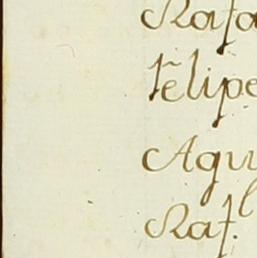 Rafa
Felipe
Agu
Raf.l